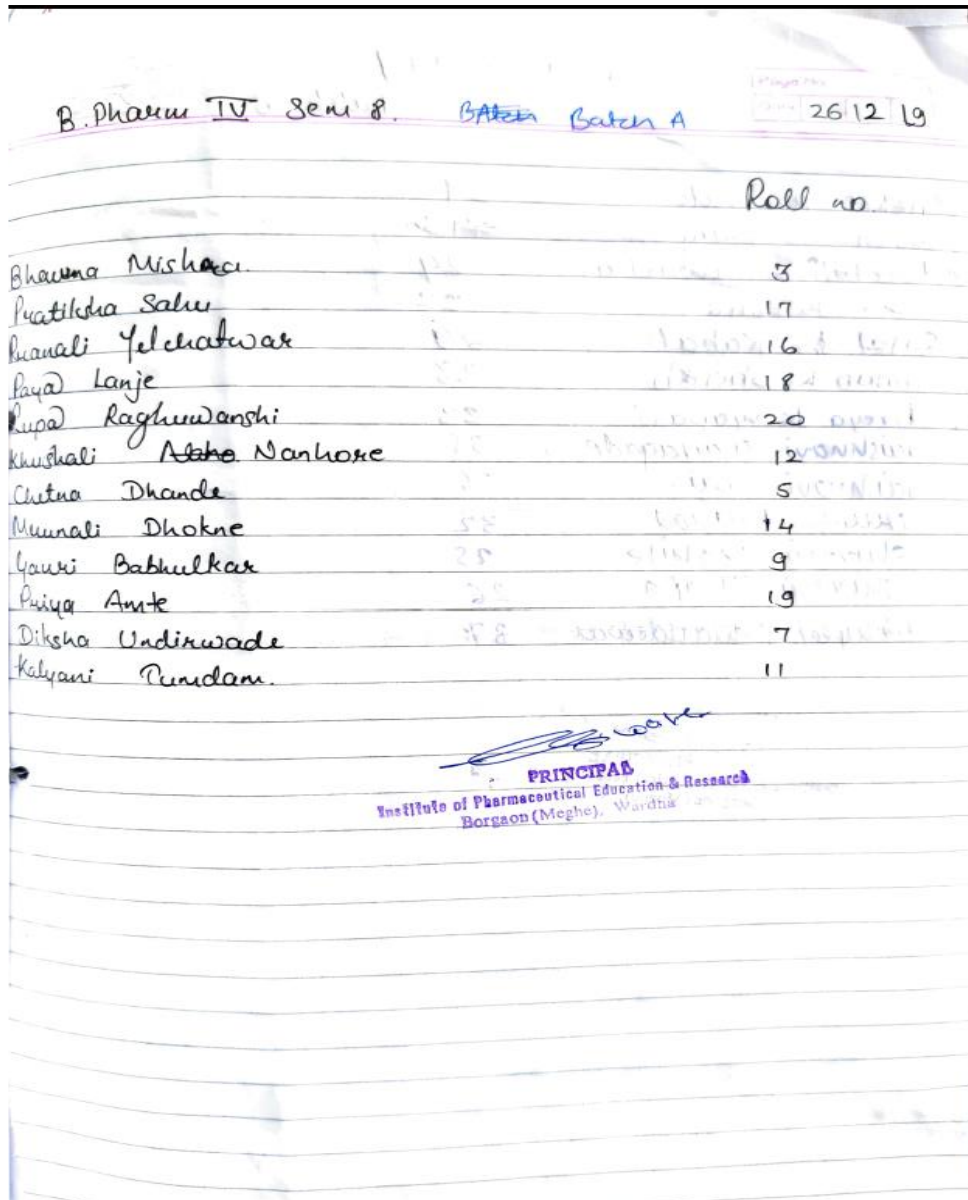 B. Pharm IV Sem 8. Batch A 26 12 19
Roll no.
Bhavna Mishra. 3
Pratiksha Sahu 17
Pranali Yelchatwar 16
Payal Lanje 18
Rupal Raghuwanshi 20
Khushali Nanhore 12
Chetna Dhande 5
Mrunali Dhokne 14
Gauri Babhulkar 9
Priya Amte 19
Diksha Undirwade 7
Kalyani Tumdam. 11
PRINCIPAL
Institute of Pharmaceutical Education & Research
Borgaon (Meghe), Wardha